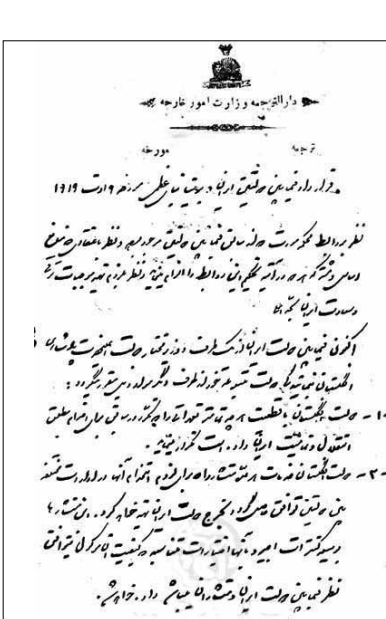 دارالترجمه وزارت امور خارجه
ترجمه مورخه
قرارداد فیمابین دولتین ایران و بریتانیای عظمی مورخه ۹ اوت ۱۹۱۹
نظر بروابط محکم دوستی که از سابق فیمابین دولتین موجود بوده و نظر باعتقاد منافع
اساسی مشترک هر دو در آتیه تحکیم این روابط را الزام مینماید و نظر بلزوم تهیه موجبات ترقی
و سعادت ایران
اکنون فیمابین دولت ایران از یک طرف و وزیر مختار دولت اعلیحضرت پادشاه
انگلستان بنمایندگی دولت متبوعه خود از طرف دیگر مواد ذیل مقرر میگردد :
۱ - دولت انگلستان با قطعیت هر چه تمامتر تعهداتی را که مکرر در سابق برای احترام مطلق
استقلال و تمامیت ایران داده است تکرار مینماید .
۲ - دولت انگلستان خدمات هر عده مستشار را که برای لزوم استخدام آنها در ادارات مختلفه
بین دولتین توافق حاصل گردد بخرج دولت ایران تهیه خواهد کرد . این مستشارها
با کنترات اجیر و بآنها اختیارات متناسبه داده کیفیت این اختیارات بسته بتوافق
نظر فیمابین دولت ایران و مستشارها خواهد بود .